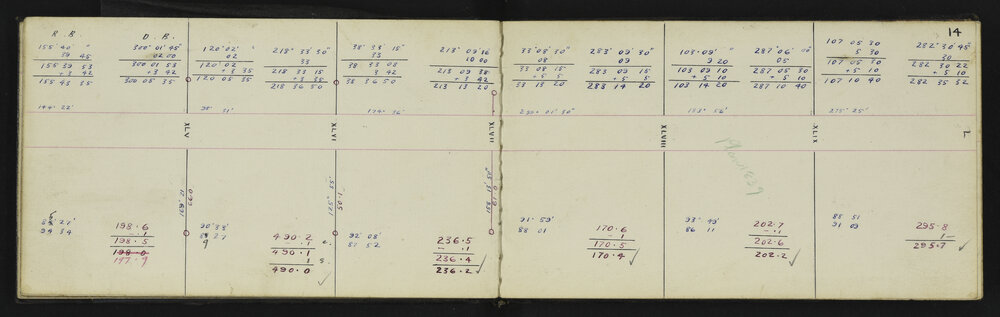 14
R. B. D. B.
155° 40' " 300° 01' 45"
39 45 02 00
155 39 53 300 01 53
+3 42 +3 42
155 43 35 300 05 35
144° 22'
120° 02' "
02
120° 02'
+3 35
120 05 35
218° 33' 30"
33
218 33 15
+3 35
218 36 50
38° 33' 15"
33
38 33 08
3 42
38 36 50
174° 36'
213° 09' 16
10 00
213 09 38
+3 42
213 13 20
33° 08' 30"
08
33 08 15
+5 5
33 13 20
283° 09' 30"
09
283 09 15
+5 5
283 14 20
103° 09' "
9 20
103 09 10
+5 10
103 14 20
287° 06' 00"
05
287 05 30
+5 10
287 10 40
107 05 30
5 30
107 05 30
+5 10
107 10 40
275° 25'
282° 30' 45"
30
282 30 22
+5 10
282 35 52
XLV
XLVI
XLVII
XLVIII
XLIX
L
169° 12'
066
125° 55'
50.1
Plan 1829
94 34
198.6
.1
198.5
198.0
197.9
90° 38'
490.2
.1
490.1
1
490.0
92° 08'
87 52
236.5
.1
236.4
236.2
91° 59'
88 01
170.6
.1
170.5
170.4
93° 49'
86 11
202.7
.1
202.6
202.2
88 51
91 09
295.8
1
295.7